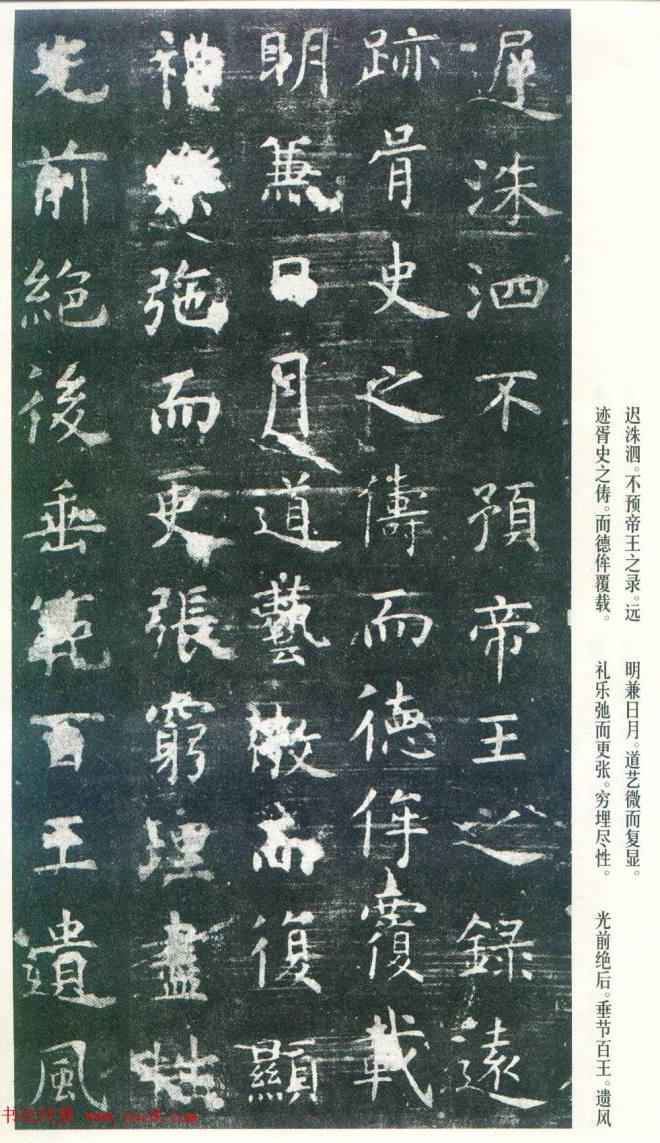 遟洙泗不預帝王之錄遠
跡胥史之儔而德侔覆載
明兼日月道藝微而復顯
禮樂弛而更張窮理盡性
光前絕後垂範百王遺風
迟洙泗。不预帝王之录。远
迹胥史之俦。而德侔覆载。
明兼日月。道艺微而复显。
礼乐弛而更张。穷埋尽性。
光前绝后。垂节百王。遗风
书法欣赏 www.yac8.com